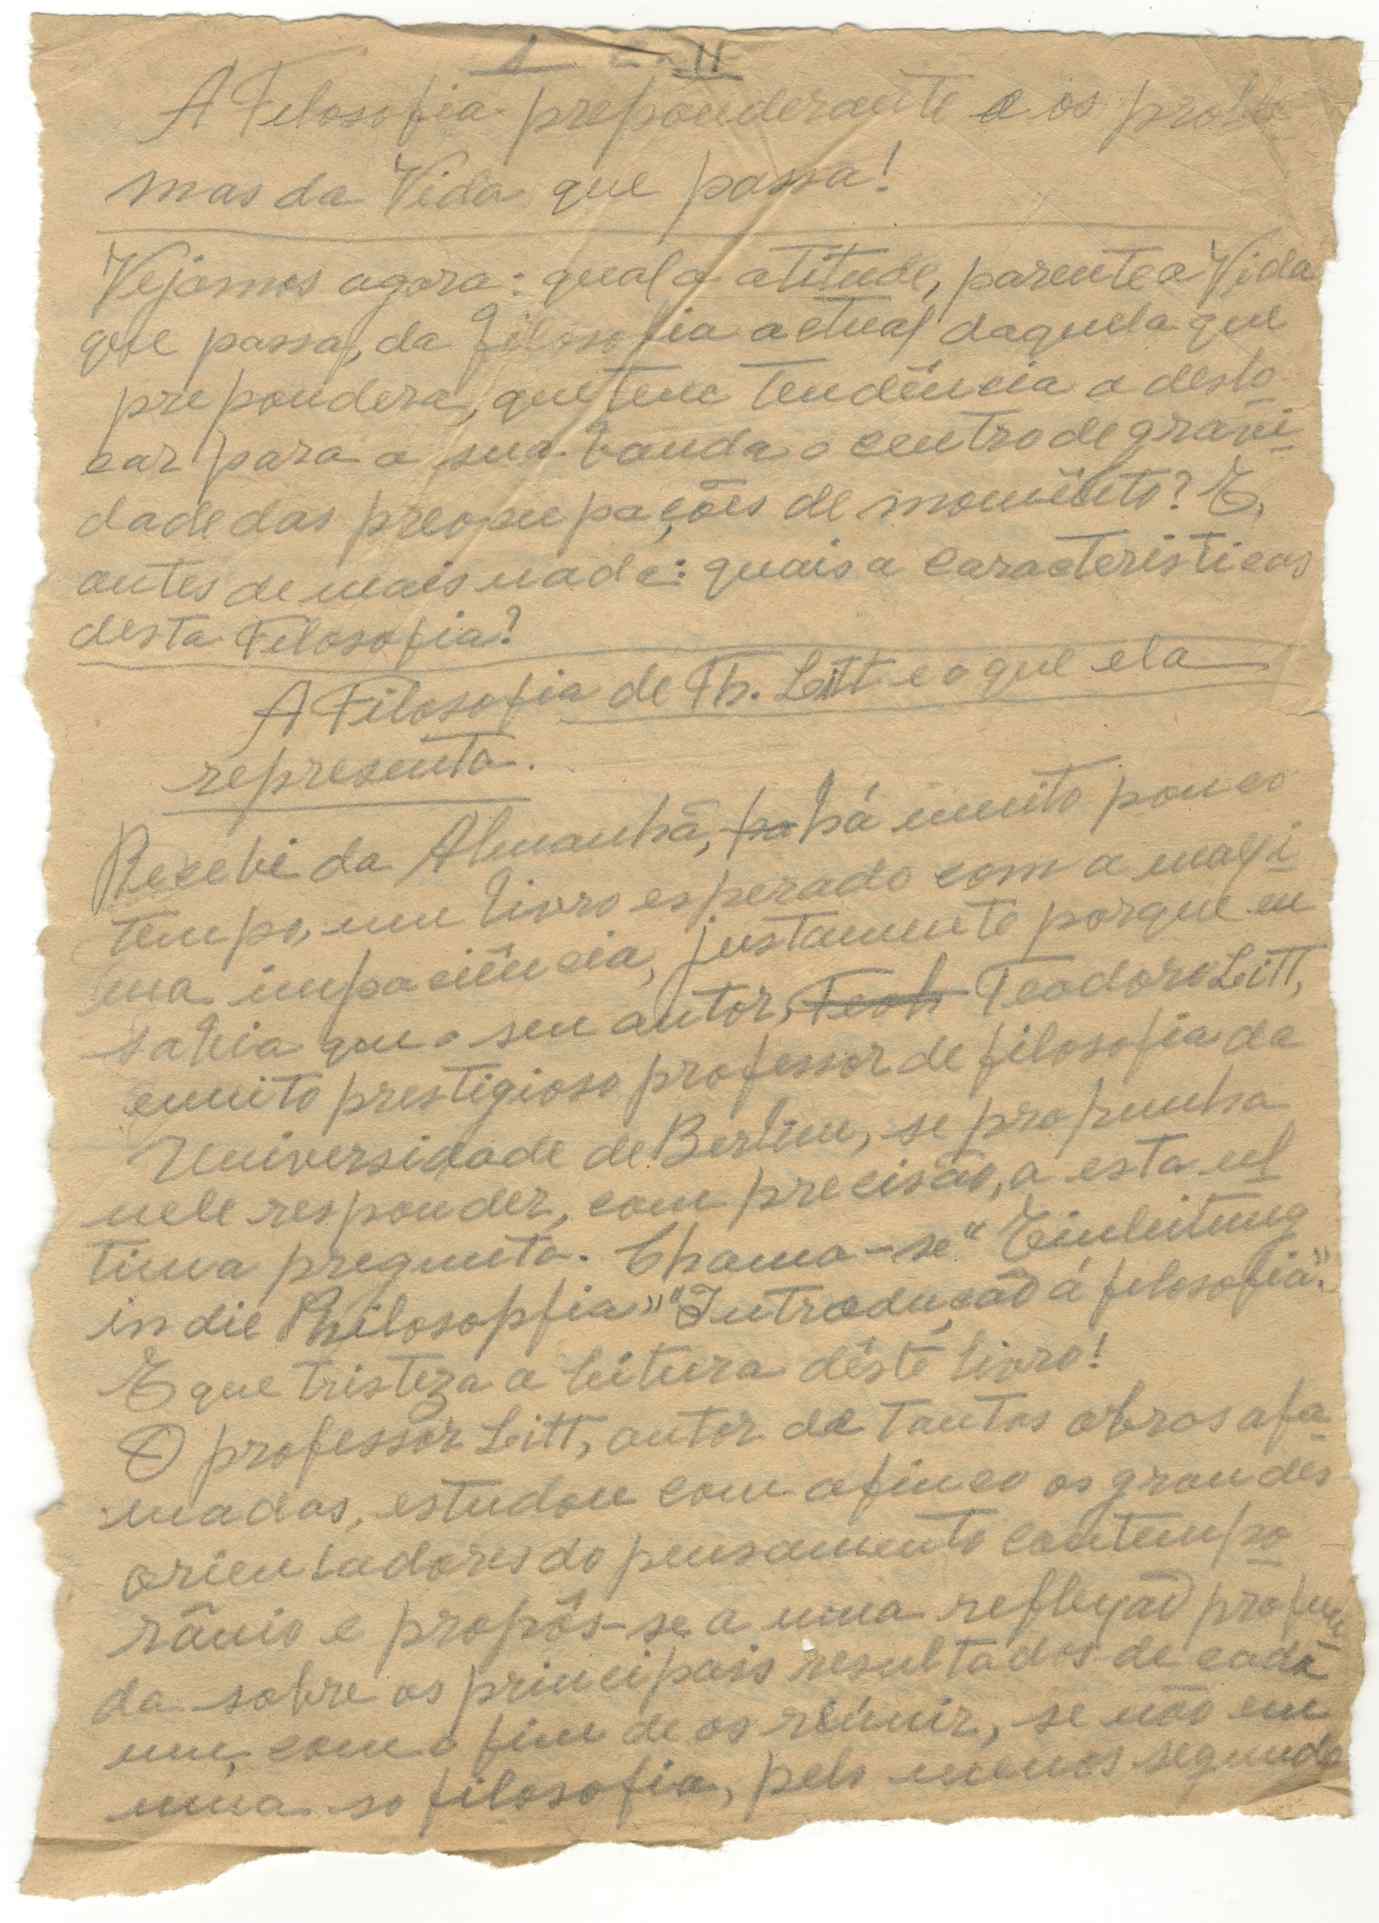 II
A Filosofia preponderante e os proble
mas da Vida que passa!
Vejamos agora: qual a atitude, perente a Vida
que passa, da filosofia actual daquela que
prepondera, que tem tendência a deslo
car para a sua banda o centro de gravi
dade das preocupações de momênto? E,
antes de mais nada: quais a caracteristicas
desta Filosofia?
A Filosofia de Th. Litt e o que ela
representa.
Recebi da Almanhã, ha há muito pouco
tempo, um livro esperado com a maxi
ma impaciência, justamente porque eu
sabia que o seu autor, Teoh Teodoro Litt,
muito prestigioso professor de filosofia da
Universidade de Berlim, se propunha
nele responder, com precisão, a esta ul
tima pregunta. Chama-se "Einleitung
in die Philosopfia" "Introdução á filosofia".
E que tristeza a leitura dêste livro!
O professor Litt, autor de tantas obras afa
madas, estudou com afinco os grandes
orientadores do pensamento contempo
râneo e propôs-se a uma reflexão profun
da sobre os principais resultados de cada
um, com o fim de os reünir, se não em
uma so filosofia, pelo menos segundo